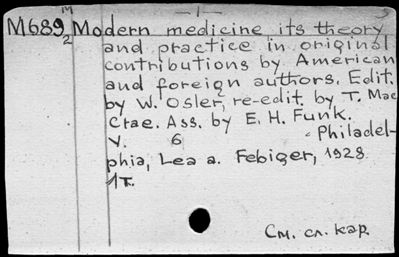 — 1 —
M
M689 Modern medicine its theory
2
and practice in original
contributions by American
and foreign authors. Edit.
by W. Osler, re-edit. by T. Mac
Crae. Ass. by E. H. Funk.
V. 6 Philadel-
phia, Lea a. Febiger, 1928
1т.
См. сл. кар.